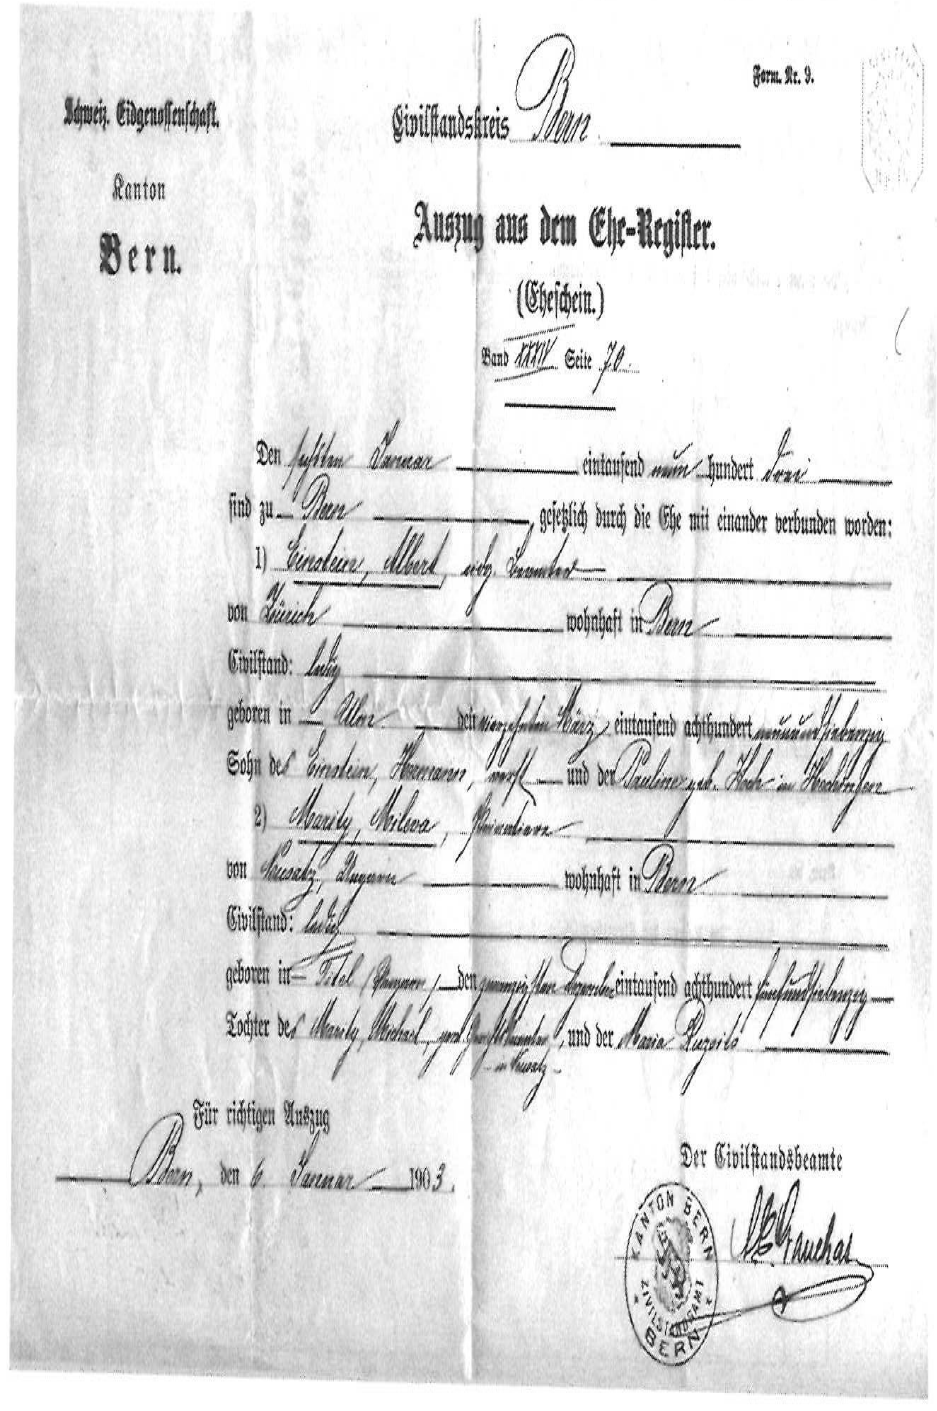 Form. Nr. 9.
Schweiz. Eidgenossenschaft.
Civilstandskreis Bern
Kanton
Bern.
Auszug aus dem Ehe-Register.
(Eheschein.)
Band XXXIV Seite 70.
Den sechsten Januar eintausend neun hundert drei
sind zu Bern, gesetzlich durch die Ehe mit einander verbunden worden:
1) Einstein, Albert, eidg. Beamter
von Zürich wohnhaft in Bern
Civilstand: ledig
geboren in Ulm den vierzehnten März eintausend achthundert neunundsiebenzig
Sohn des Einstein, Hermann, und der Pauline geb. Koch in Hechingen
2) Marity, Mileva, Privatiere
von Neusatz, Ungarn wohnhaft in Bern
Civilstand: ledig
geboren in Titel (Ungarn), den zwanzigsten Dezember eintausend achthundert fünfundsiebenzig
Tochter des Marity, Michael, und der Maria Ruzvits
in Neusatz
Für richtigen Auszug
Bern, den 6 Januar 1903.
Der Civilstandsbeamte
KANTON BERN
ZIVILSTANDSAMT
BERN